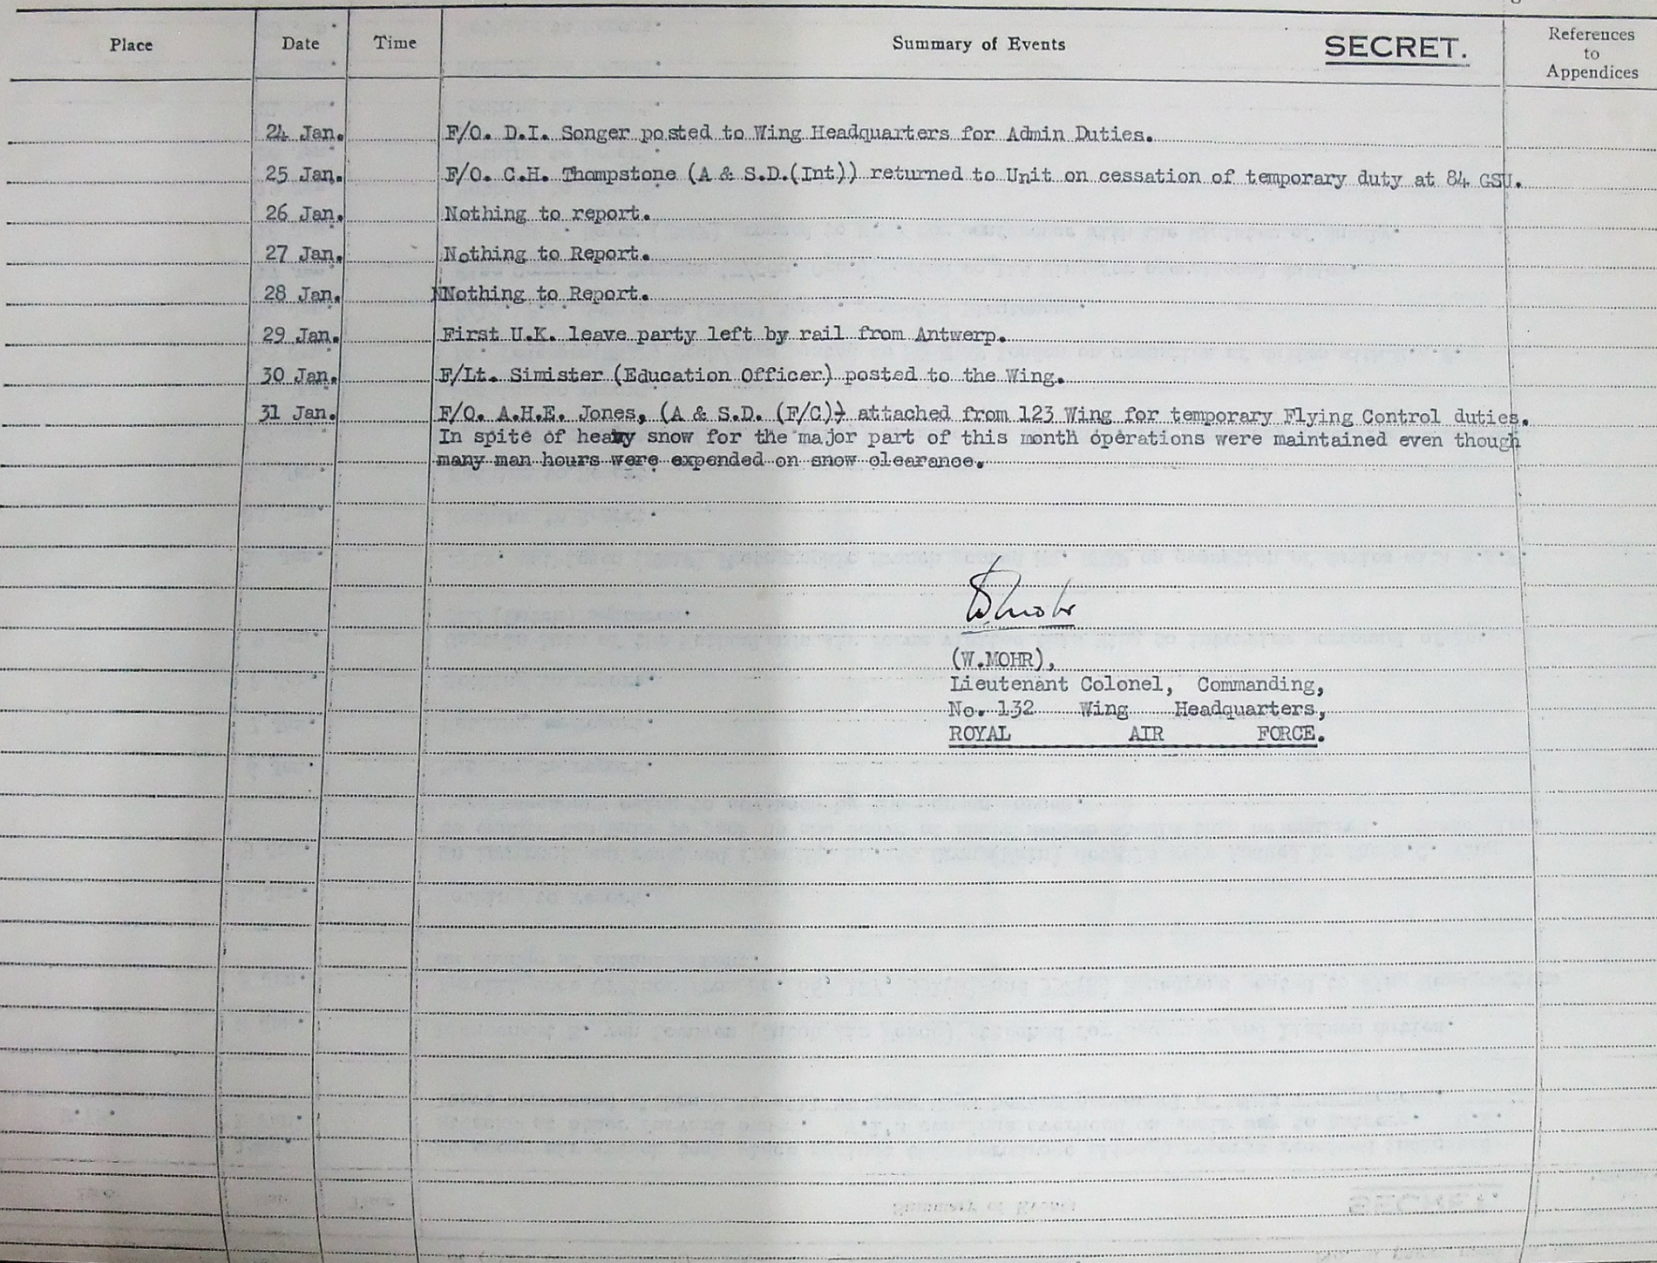 Place Date Time Summary of Events SECRET. References to Appendices
24 Jan. F/O. D.I. Songer posted to Wing Headquarters for Admin Duties.
25 Jan. F/O. C.H. Thompstone (A & S.D.(Int)) returned to Unit on cessation of temporary duty at 84 GSU.
26 Jan. Nothing to report.
27 Jan. Nothing to Report.
28 Jan. Nothing to Report.
29 Jan. First U.K. leave party left by rail from Antwerp.
30 Jan. F/Lt. Simister (Education Officer) posted to the Wing.
31 Jan. F/O. A.H.E. Jones, (A & S.D. (F/C)) attached from 123 Wing for temporary Flying Control duties.
In spite of heavy snow for the major part of this month operations were maintained even though
many man hours were expended on snow clearance.
WMohr
(W.MOHR),
Lieutenant Colonel, Commanding,
No. 132 Wing Headquarters,
ROYAL AIR FORCE.